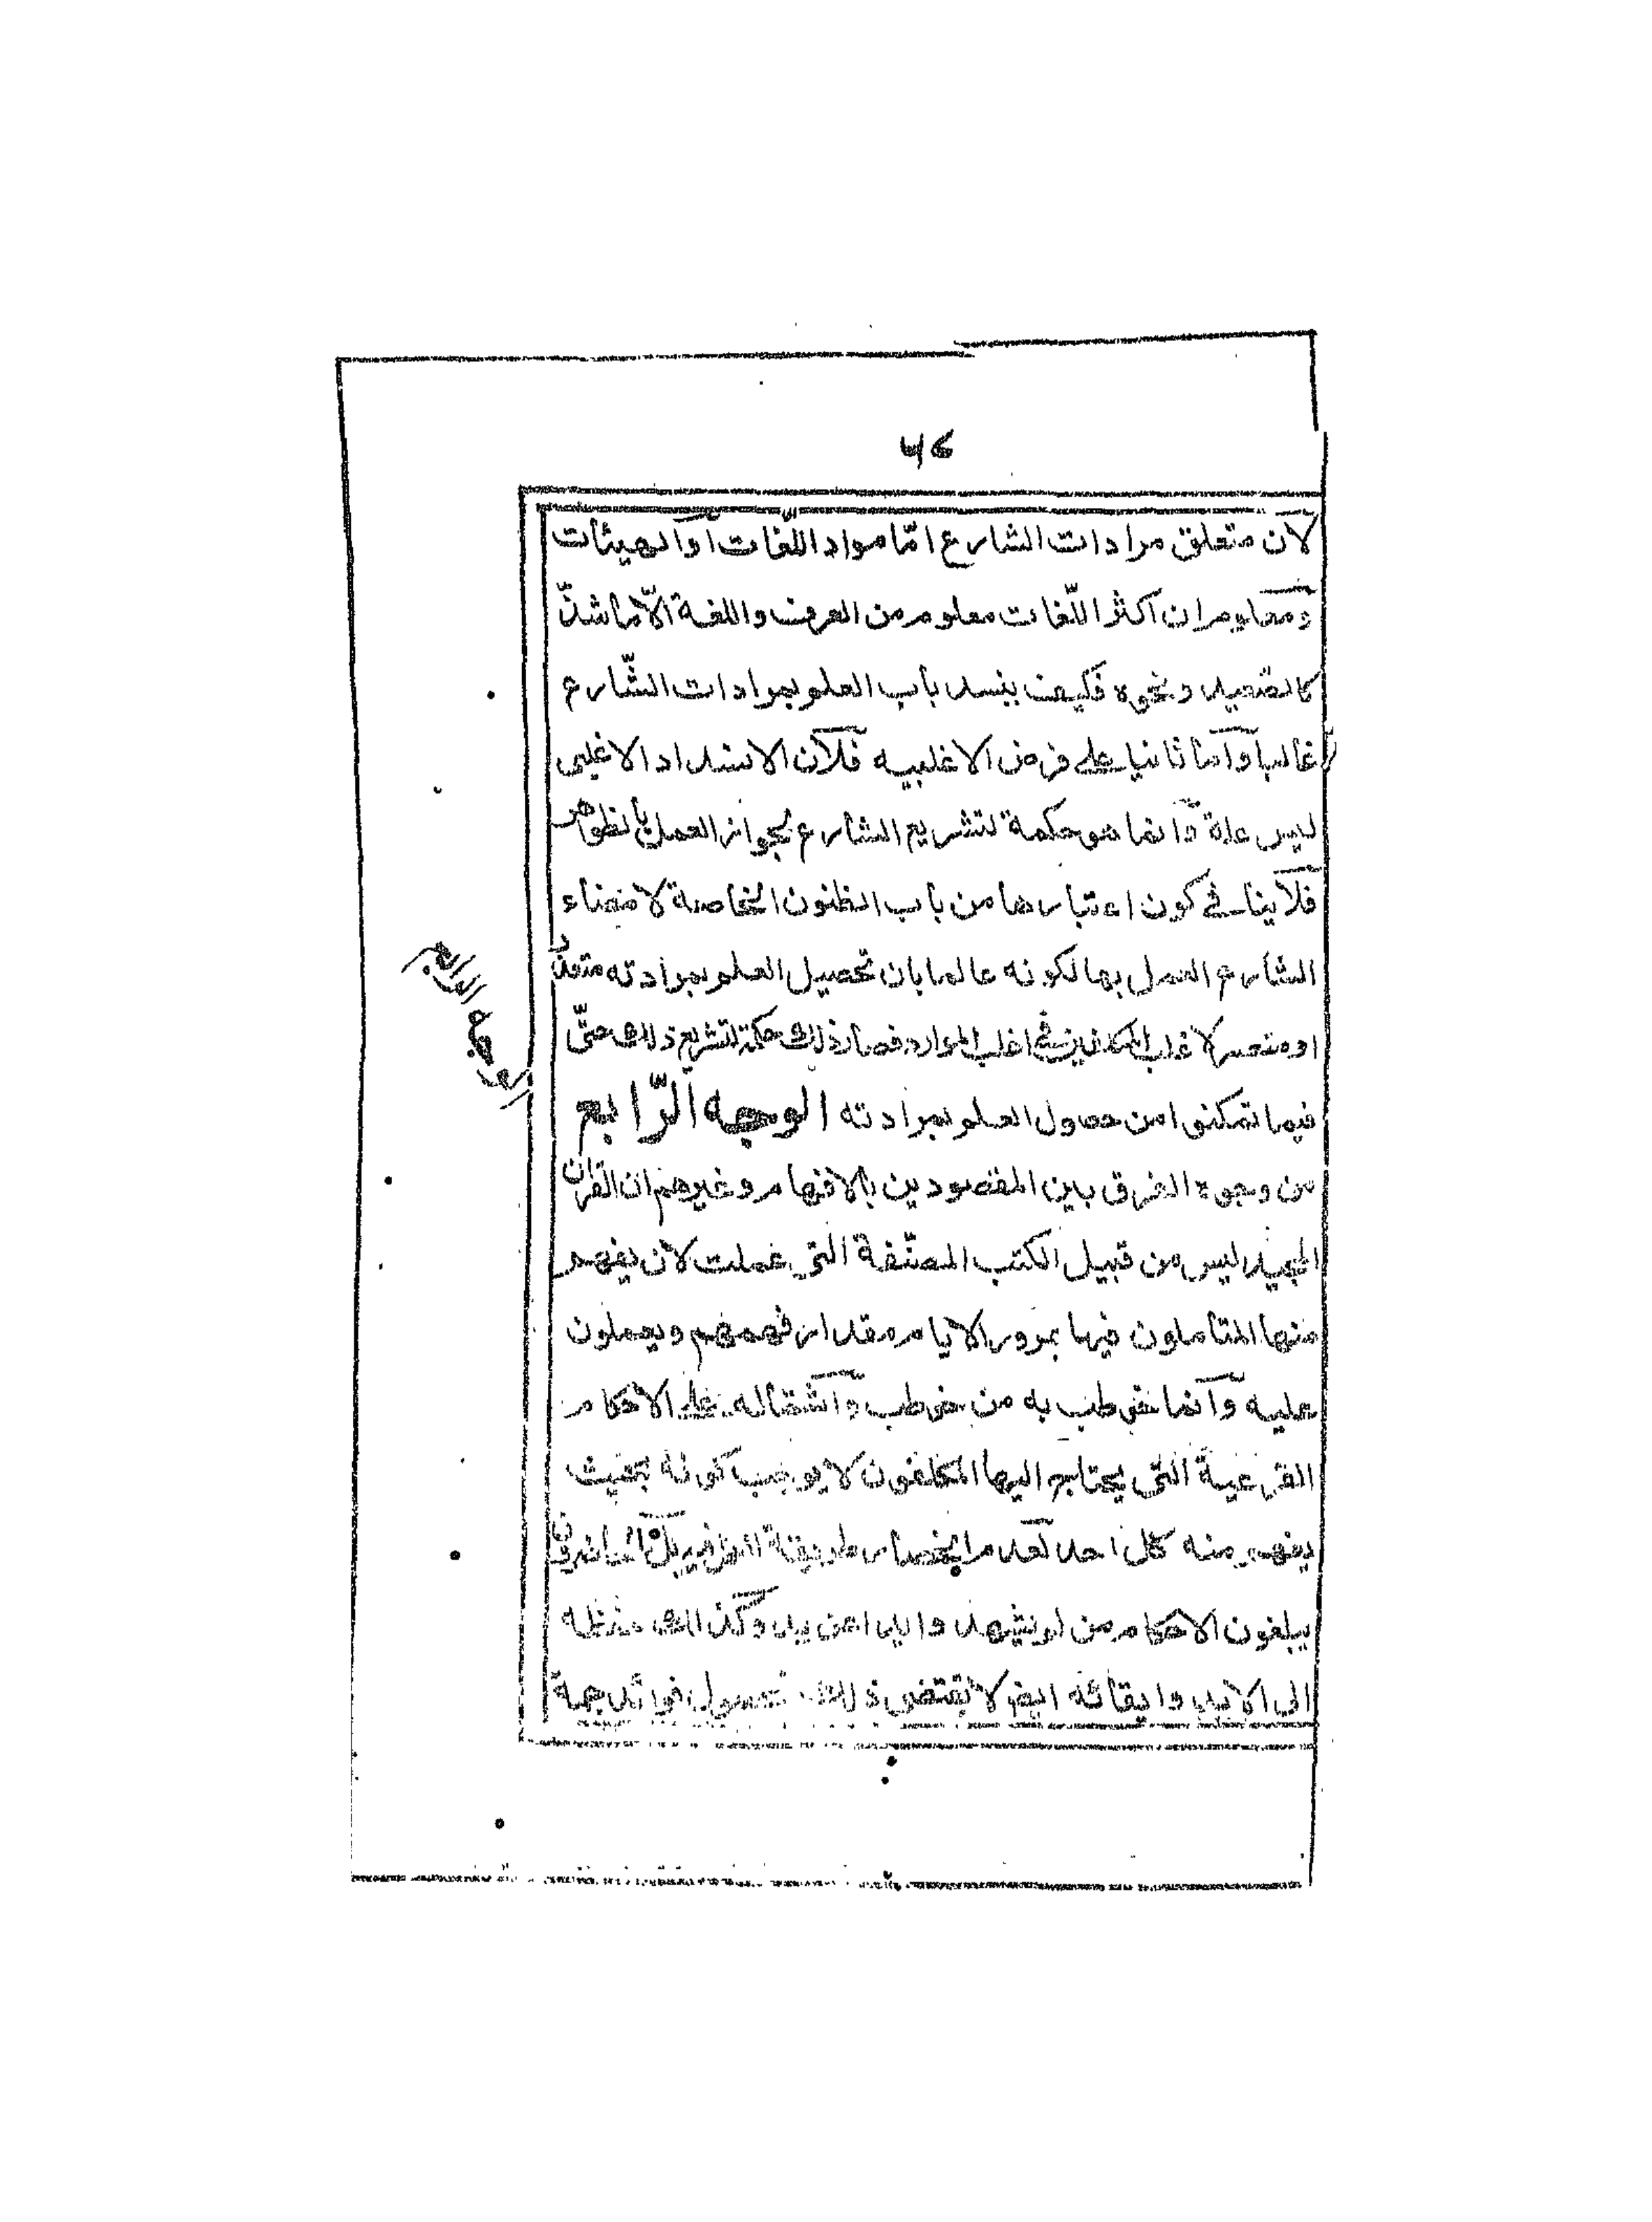 لان متعلق مرادات الشارع امّا مواد اللغات او الهيئات
ومعلوم ان اكثر اللّغات معلوم من العرف واللغة الّا ما شذّ
كالصعيد ونحوه فكيف ينسد باب العلم بمرادات الشّارع
غالبا وامّا ثانيا على فرض الاغلبيه فلان الانسداد الاغلبى
ليس علة وانّما هو حكمة لتشريع الشارع لجواز العمل بالظواهر
فلا ينافى كون اعتبارها من باب الظنون الخاصة لامضاء
الشارع العمل بها لكونه عالما بان تحصيل العلم بمرادته متعذّر
او متعسر لاغلب المكلفين فى اغلب الموارد فصار ذلك حكمة لتشريع ذلك حتّى
فيما تمكنوا من حصول العلم بمرادته الوجه الرّابع
الوجه الرابع
من وجوه الفرق بين المقصودين بالافهام وغيرهم ان القران
المجيد ليس من قبيل الكتب المصنّفة التى عملت لان يفهم
منها المتاملون فيها بمرور الايام مقدار فهمهم ويعملون
عليه وانّما خوطب به من خوطب واشتماله على الاحكام
الفرعية التى يحتاج اليها المكلفون لا يوجب كونه بحيث
يفهم منه كل احد لعدم انحصار طريقة
يبلغون الاحكام من لم يشهد والدا عن يد وكذلك
الى الابد وابقائه ايضا لا يقتضى ذلك لحصول فوائد جمة